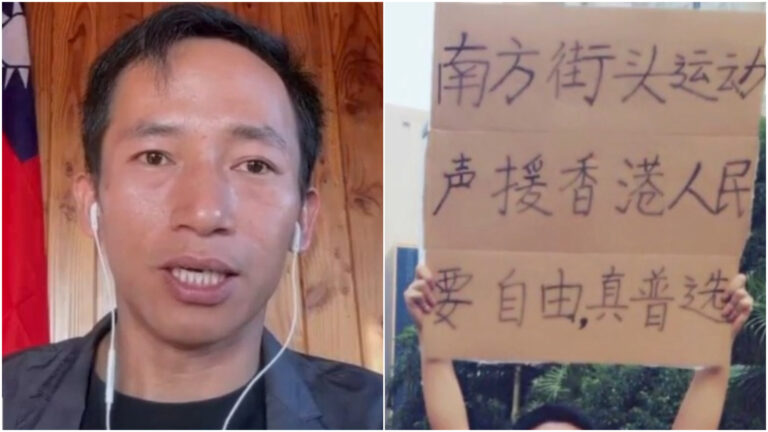 南方街头运动
声援香港人民
要自由,真普选